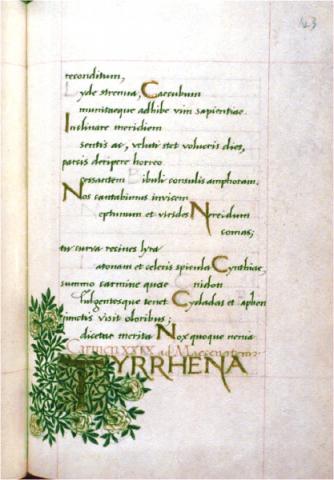 43
reconditum,
Lyde strenua, Caecubum
munitaeque adhibe vim sapientiae.
Inclinare meridiem
sentis ac, veluti stet volucris dies,
parcis deripere horreo
cessantem Bibuli consulis amphoram.
Nos cantabimus invicem
Neptunum et virides Nereidum
comas;
tu curva recines lyra
Latonam et celeris spicula Cynthiae,
summo carmine quae Cnidon
fulgentesque tenet Cycladas et Paphon
junctis visit oloribus;
dicetur merita Nox quoque nenia
Carmen XXIX ad Maecenatem.
TYRRHENA